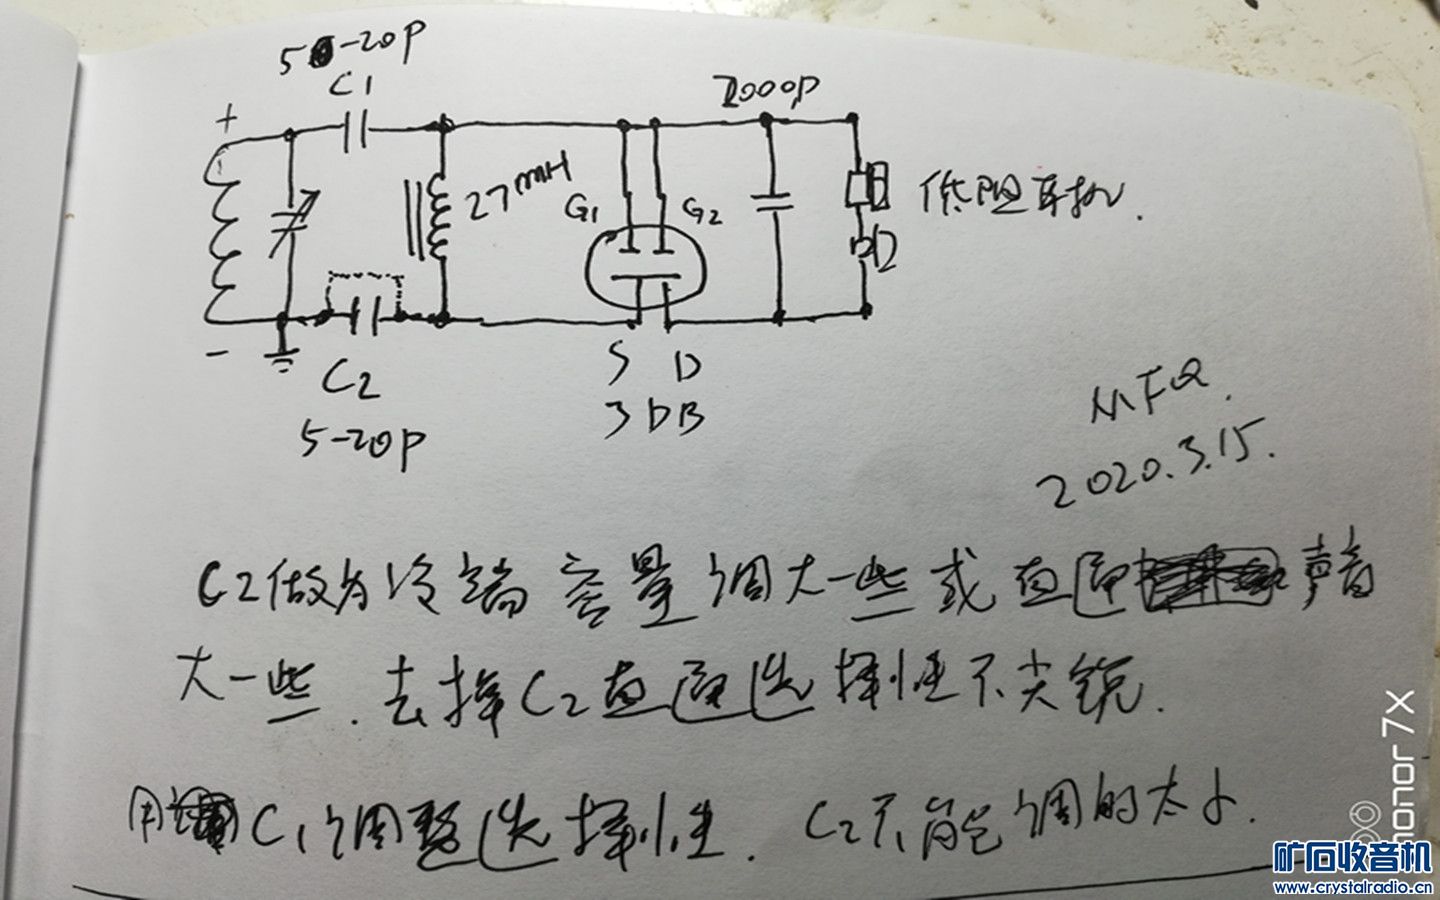 5-20P
C1
+
-
27mH
G1
G2
2000P
低阻耳机.
C2
5-20P
S D
3DB
MFQ.
2020.3.15.
C2做为冷端容量调大一些或直通声音
大一些.去掉C2直通选择性不尖锐.
用C1调整选择性.C2不能调的太小.
honor 7X
矿石收音机
www.crystalradio.cn